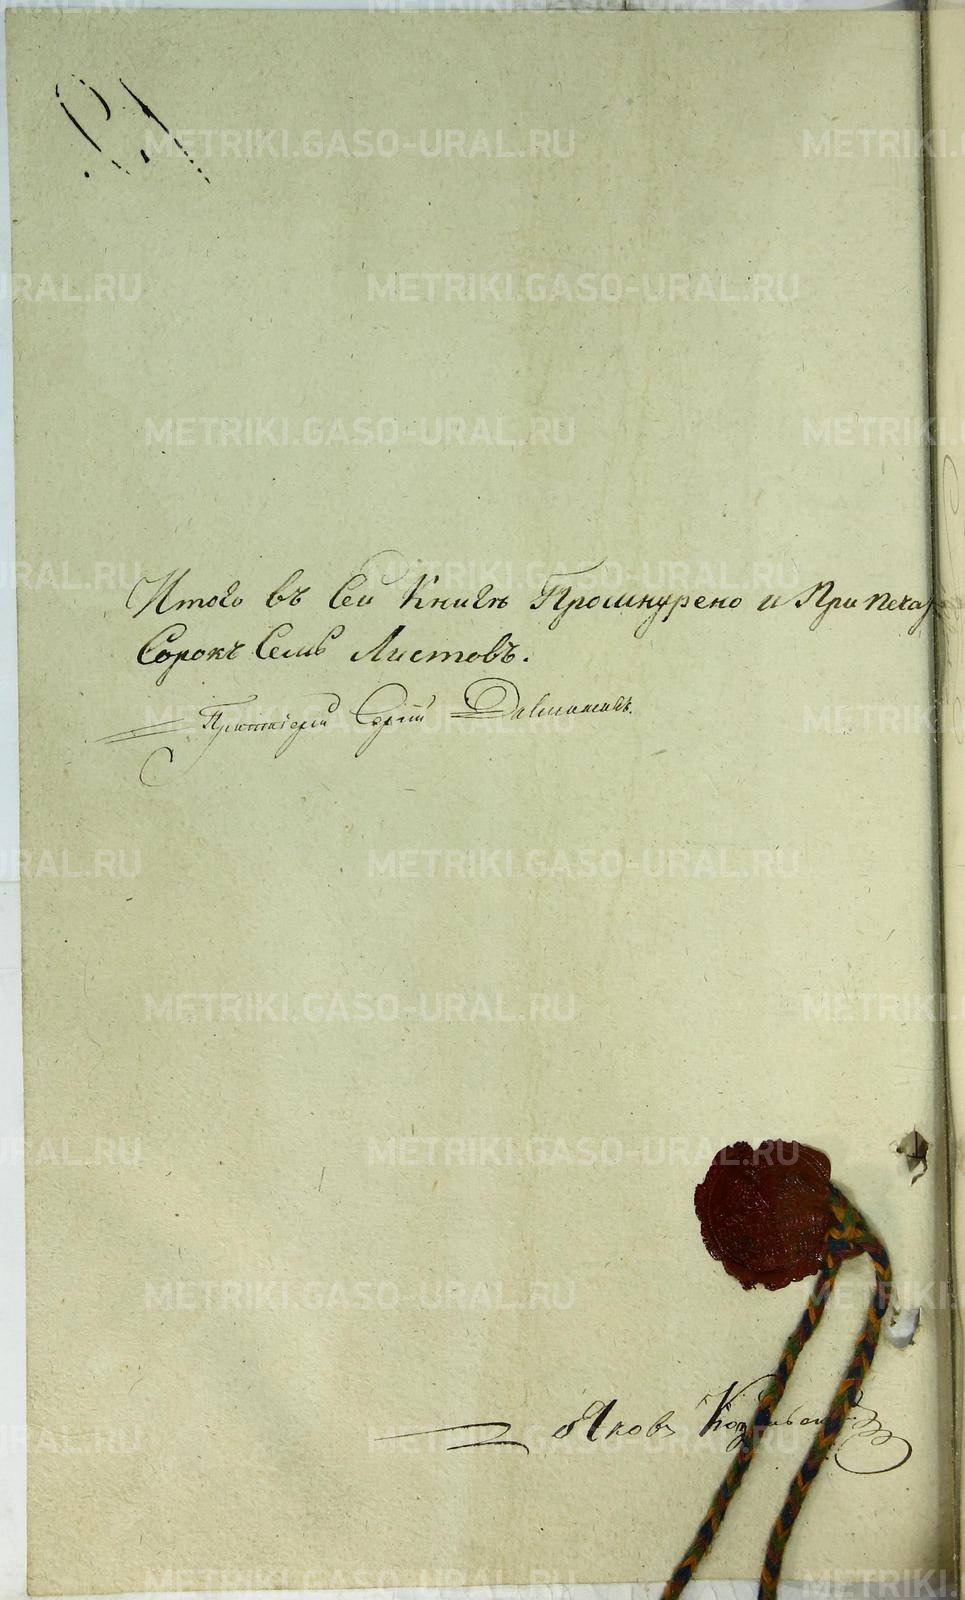 Итого въ Сей Книгѣ Прошнурено и Припеча
Сорокъ Семь Листовъ.
Протоіерей Сергій
Яковъ
METRIKI.GASO-URAL.RU